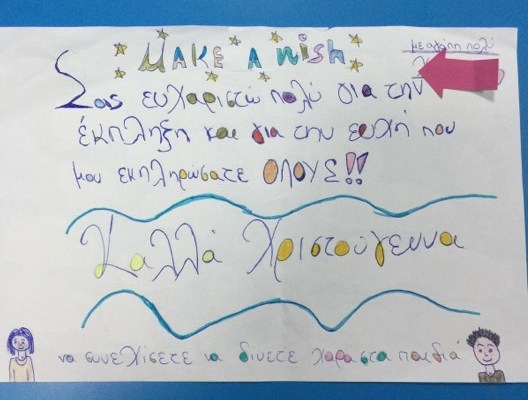 MAKE A WISH
με αγάπη πολύ
Σας ευχαριστώ πολύ για την
έκπληξη και για την ευχή που
μου εκπληρώσατε ΟΛΟΥΣ!!
Καλλά Χριστούγεννα
να συνεχίσετε να δινετε χαρα στα παιδιά